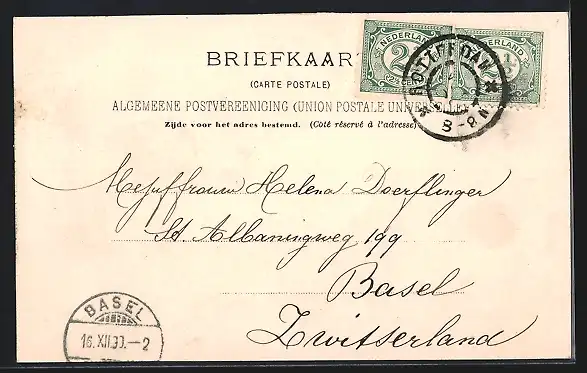 BRIEFKAART
(CARTE POSTALE)
ALGEMEENE POSTVEREENIGING (UNION POSTALE UNIVERSELLE)
Zijde voor het adres bestemd. (Côté réservé à l'adresse)
NEDERLAND
2½
ROTTERDAM
8-9N
Mejuffrouw Helena Doerflinger
St. Albaningweg 199
Basel
Zwitserland
BASEL
16.XII.
—2